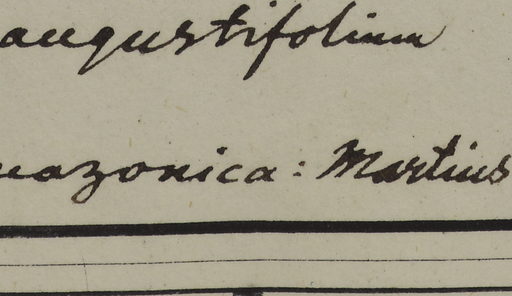 angustifolium
mazonica: Martius